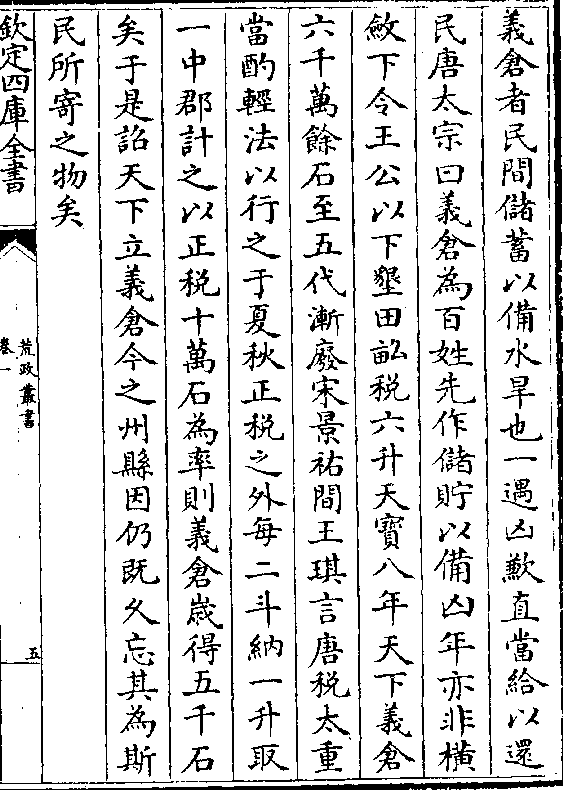 義倉者民間儲蓄以備水旱也一遇凶歉直當給以還
民唐太宗曰義倉為百姓先作儲貯以備凶年亦非橫
斂下令王公以下墾田畝税六升天寶八年天下義倉
六千萬餘石至五代漸廢宋景祐間王琪言唐税太重
當酌輕法以行之于夏秋正税之外每二斗納一升取
一中郡計之以正税十萬石為率則義倉嵗得五千石
矣于是詔天下立義倉今之州縣因仍既久忘其為斯
民所寄之物矣
欽定四庫全書
荒政叢書
卷一
五